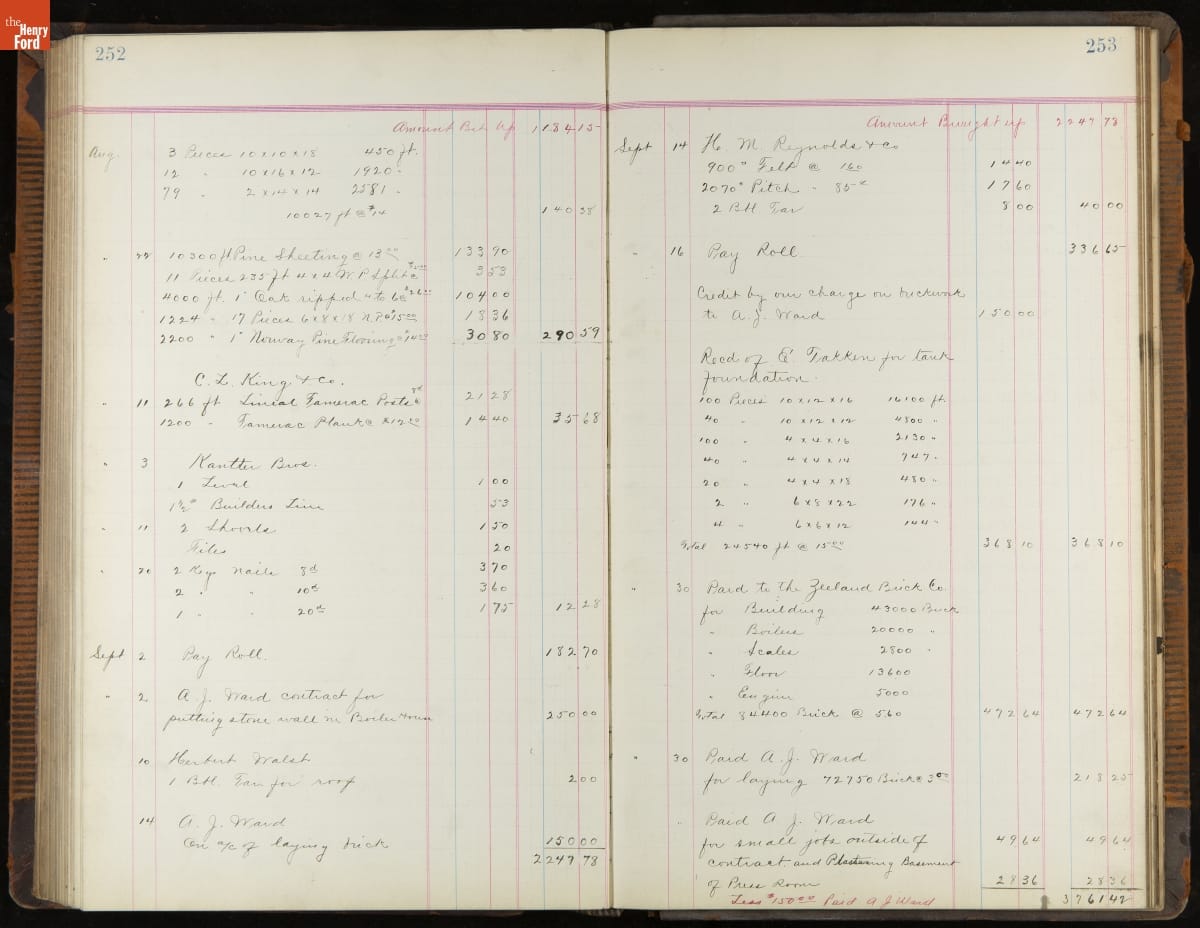 the
Henry
Ford
252
Amount Bot Up 1184 15
Aug. 3 Pieces 10x10x18 450 ft.
12 " 10x16x12 1920 "
79 " 2x14x14 2581 "
10027 ft @ $14 140 38
" 22 10300 ft Pine Sheeting @ 13 00 133 90
11 Pieces 235 ft 4x4 W. P. Split @ 3 53
4000 ft. 1" Oak ripped 4 to 6 @ $26 00 104 00
1224 " 17 Pieces 6x8x18 N.P. @ $15 00 18 36
2200 " 1" Norway Pine Flooring @ $14 00 30 80 290 59
C. L. King & Co.
" 11 266 ft Lineal Tamerac Posts @ 8¢ 21 28
1200 " Tamerac Plank @ $12 00 14 40 35 68
" 3 Kantter Bros.
1 Level 1 00
1½# Builders Line 53
" 11 2 Shovels 1 50
Files 20
" 20 2 Kegs Nails 8d 3 70
2 " " 10d 3 60
1 " " 20d 1 75 12 28
Sept 2 Pay Roll. 182 70
" 2 A. J. Ward contract for
putting stone wall in Boiler House 250 00
10 Herbert Walsh
1 Bbl. Tar for roof 2 00
14 A. J. Ward
On a/c of laying brick 150 00
2247 78
253
Amount Brought up 2247 78
Sept 14 H. M. Reynolds & Co
900# Felt @ 160 14 40
2070# Pitch " 85¢ 17 60
2 Bbl Tar 8 00 40 00
" 16 Pay Roll. 336 65
Credit by our charge on brickwork
to A. J. Ward 150 00
Recd of E. Takken for tank
foundation.
100 Pieces 10x12x16 16100 ft
40 " 10x12x12 4800 "
100 " 4x4x16 2130 "
40 " 4x4x14 747 "
20 " 4x4x18 480 "
2 " 6x8x22 176 "
4 " 6x6x12 144 "
Total 24540 ft @ 15 00 368 10 368 10
" 30 Paid to the Zeeland Brick Co.
for Building 43000 Brick
" Boilers 20000 "
" Scales 2800 "
" Floor 13600
" Engine 5000
Total 84400 Brick @ 5.60 472 64 472 64
" 30 Paid A. J. Ward
for laying 72750 Brick @ 3 00 218 25
" Paid A J. Ward
for small jobs outside of 49 64 49 64
contract and Plastering Basement
of Press Room 28 36 28 36
Less $150 00 Paid A J Ward 3761 42